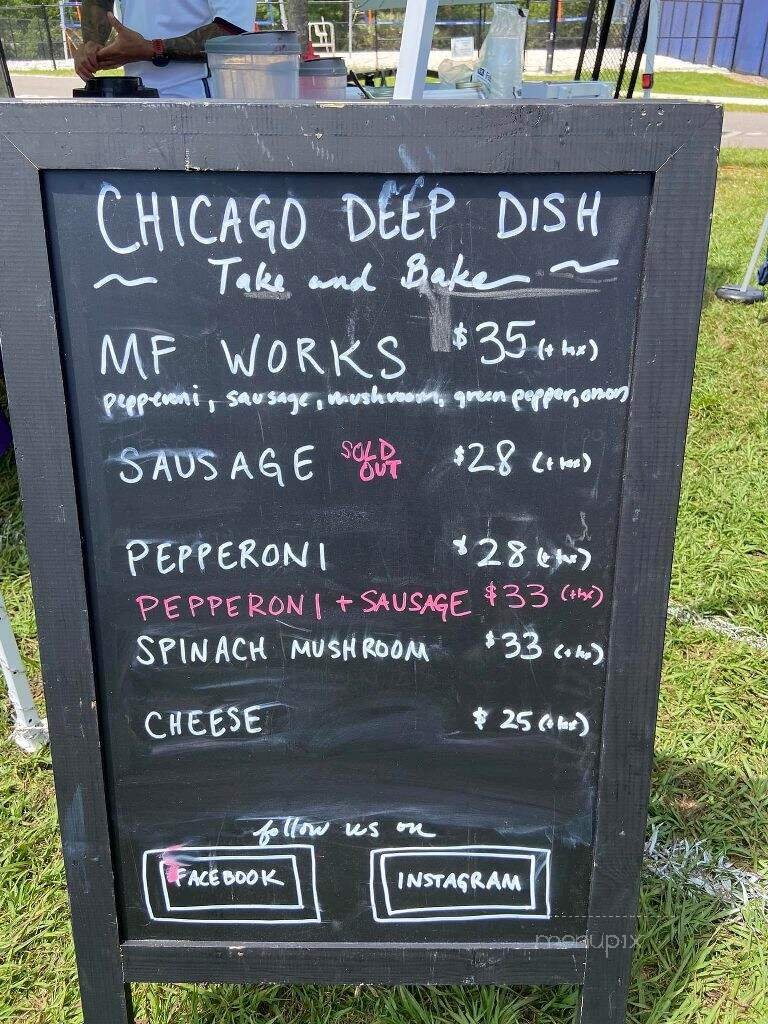 CHICAGO DEEP DISH
~ Take and Bake ~
MF WORKS $35 (+ tax)
pepperoni, sausage, mushroom, green pepper, onion
SAUSAGE SOLD OUT $28 (+ tax)
PEPPERONI $28 (+ tax)
PEPPERONI + SAUSAGE $33 (+tax)
SPINACH MUSHROOM $33 (+ tax)
CHEESE $25 (+ tax)
follow us on
FACEBOOK INSTAGRAM
menupix